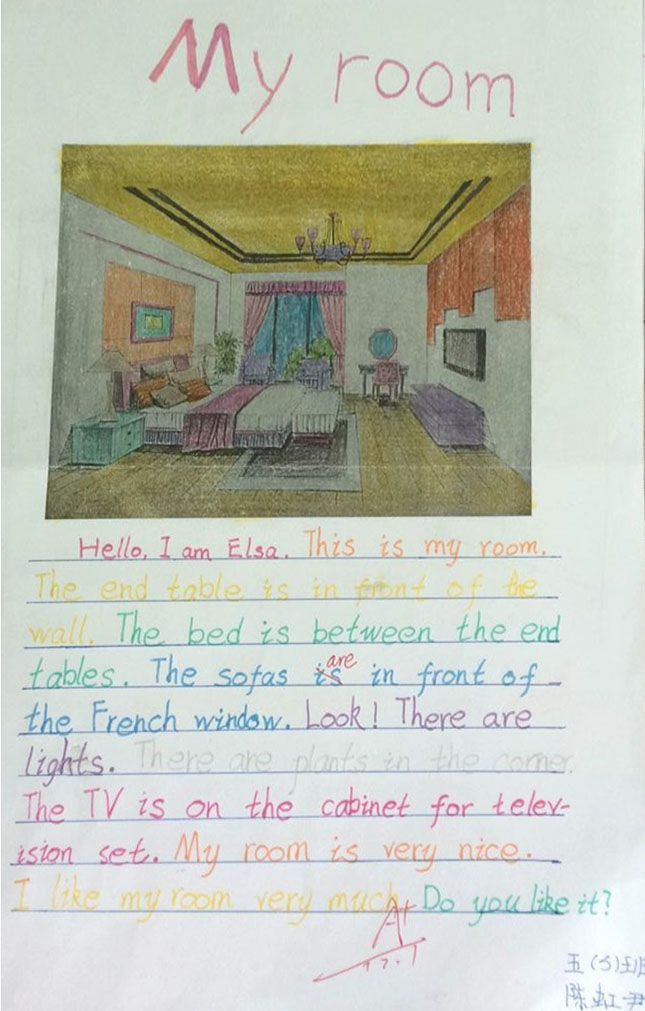 My room
Hello, I am Elsa. This is my room.
The end table is in front of the
wall. The bed is between the end
tables. The sofas is are in front of
the French window. Look! There are
lights. There are plants in the corner.
The TV is on the cabinet for telev-
ision set. My room is very nice.
I like my room very much. Do you like it?
A+
五(5)班
陈虹尹